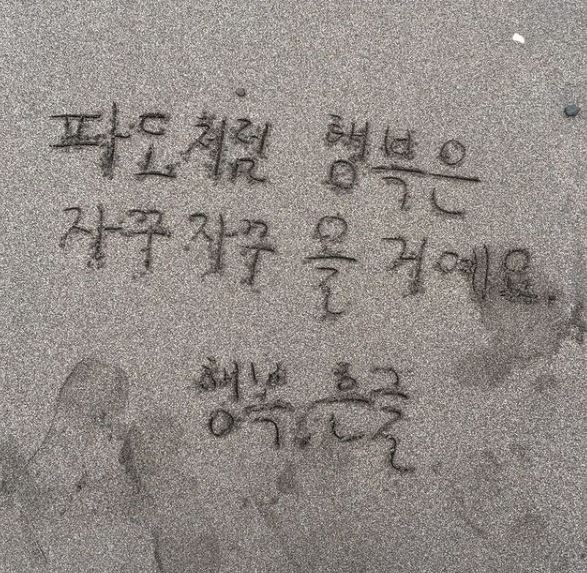 파도처럼 행복은
자꾸자꾸 올 거예요.
행복, 흔글